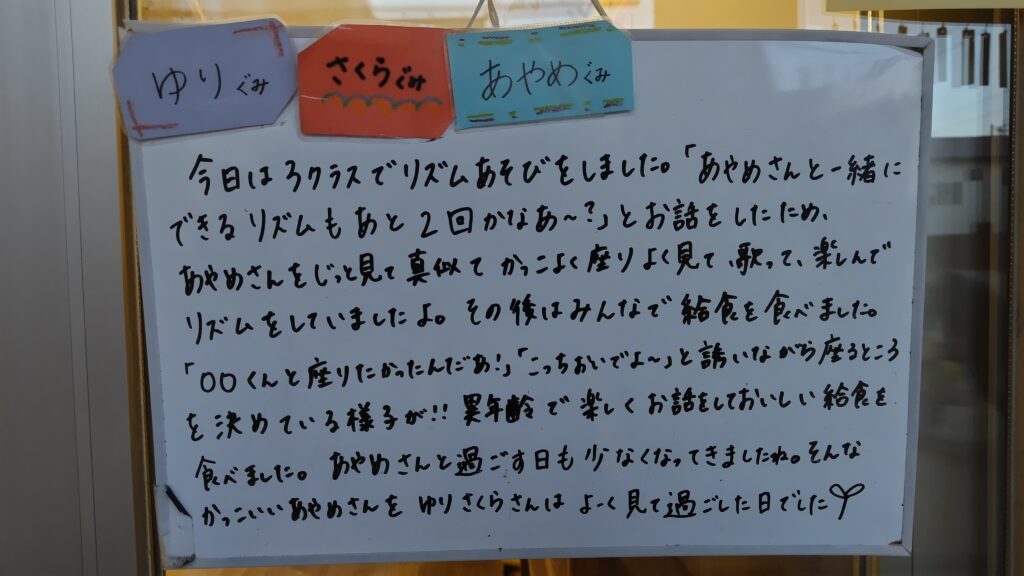 ゆりぐみ
さくらぐみ
あやめぐみ
今日は3クラスでリズムあそびをしました。「あやめさんと一緒に
できるリズムもあと2回かなあ〜?」とお話をしたため、
あやめさんをじっと見て真似てかっこよく座りよく見て、歌って、楽しんで
リズムをしていましたよ。その後はみんなで給食を食べました。
「〇〇くんと座りたかったんだあ!」「こっちおいでよ〜」と誘いながら座るところ
を決めている様子が!!異年齢で楽しくお話をしておいしい給食を
食べました。あやめさんと過ごす日も少なくなってきましたね。そんな
かっこいいあやめさんをゆりさくらさんはよーく見て過ごした日でした